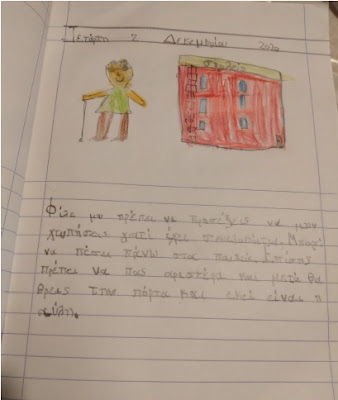 Τετάρτη 2 Δεκεμβρίου 2020
Φίλε μου πρέπει να προσέξεις να μην
χτυπήσεις γιατί έχει Μπορεί
να πέσει πάνω στα παιδιά. Επίσης
πρέπει να πας αριστερά και μετά θα
βρεις την πόρτα και εκεί είναι η
αυλή.